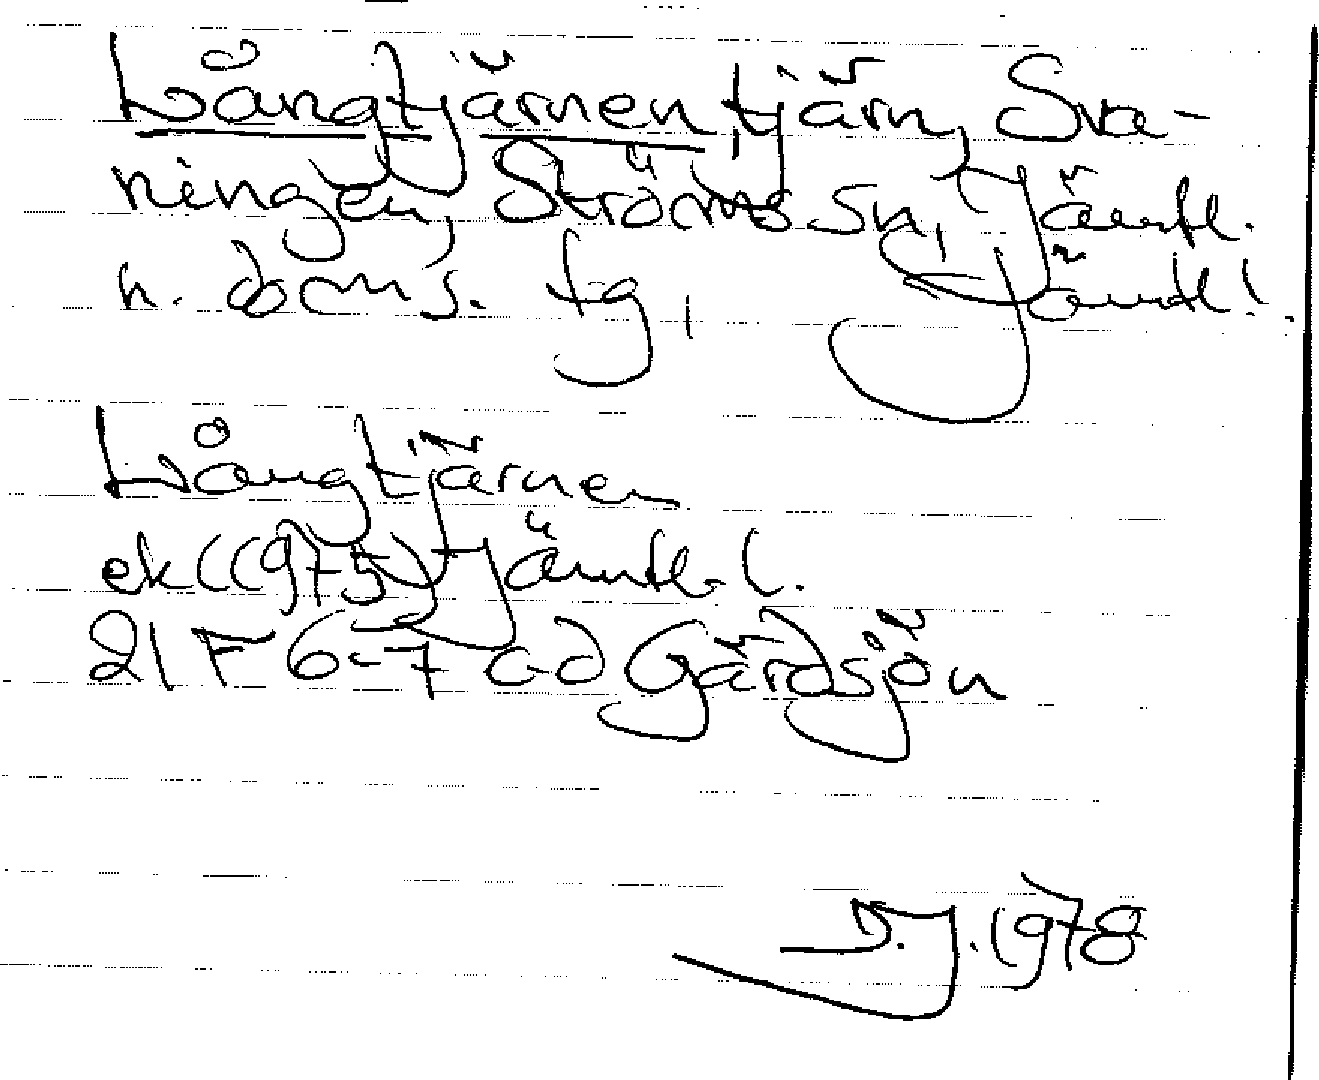 Långtjärnen, tjärn, Sva-
ningen, Ströms sn, Jämtl.
n. doms. tg, Jämtl.
Långtjärnen
ek (1975) Jämtl. l.
21 F 6-7 c-d Gärdsjön
J. 1978